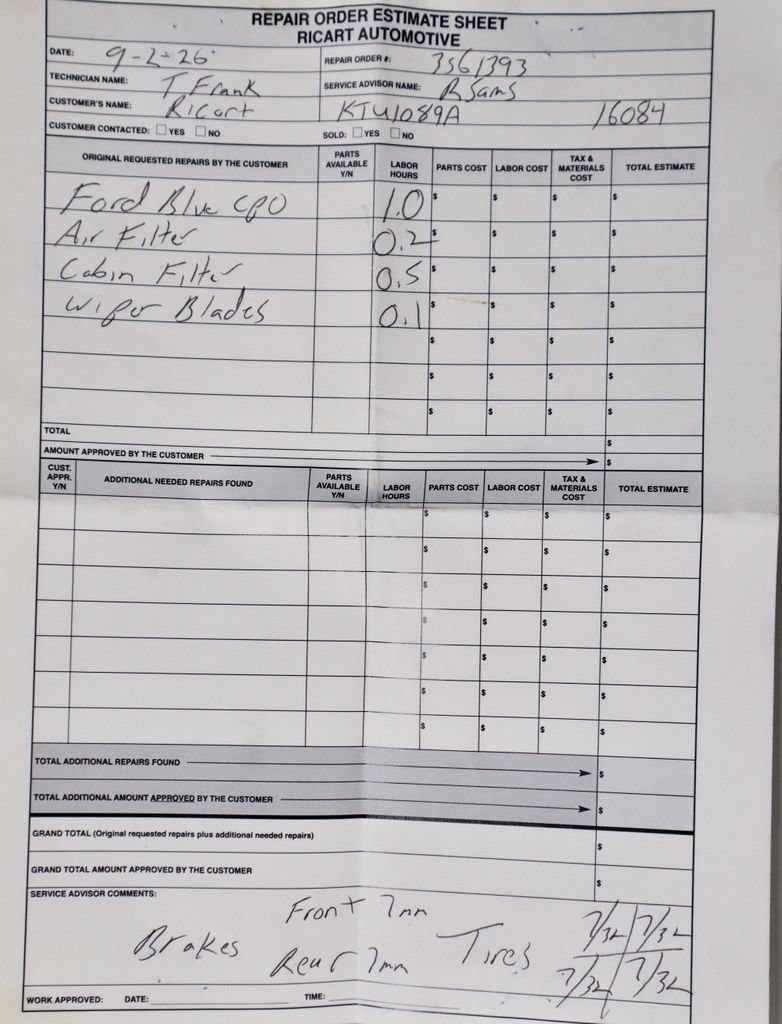 REPAIR ORDER ESTIMATE SHEET
RICART AUTOMOTIVE
DATE: 9-2-26 REPAIR ORDER #: 3561393
TECHNICIAN NAME: T Frank SERVICE ADVISOR NAME: R Sams
CUSTOMER'S NAME: Ricart KTU1089A 16084
CUSTOMER CONTACTED: YES NO SOLD: YES NO
ORIGINAL REQUESTED REPAIRS BY THE CUSTOMER PARTS AVAILABLE Y/N LABOR HOURS PARTS COST LABOR COST TAX & MATERIALS COST TOTAL ESTIMATE
Ford Blue CPO 1.0 $ $ $ $
Air Filter 0.2 $ $ $ $
Cabin Filter 0.5 $ $ $ $
Wiper Blades 0.1 $ $ $ $
$ $ $ $
$ $ $ $
$ $ $ $
TOTAL $
AMOUNT APPROVED BY THE CUSTOMER $
CUST. APPR. Y/N ADDITIONAL NEEDED REPAIRS FOUND PARTS AVAILABLE Y/N LABOR HOURS PARTS COST LABOR COST TAX & MATERIALS COST TOTAL ESTIMATE
$ $ $ $
$ $ $ $
$ $ $ $
$ $ $ $
$ $ $ $
$ $ $ $
$ $ $ $
TOTAL ADDITIONAL REPAIRS FOUND $
TOTAL ADDITIONAL AMOUNT APPROVED BY THE CUSTOMER $
GRAND TOTAL (Original requested repairs plus additional needed repairs) $
GRAND TOTAL AMOUNT APPROVED BY THE CUSTOMER $
SERVICE ADVISOR COMMENTS:
Front 7mm 7/32 7/32
Brakes Tires
Rear 7mm 7/32 7/32
WORK APPROVED: DATE: TIME: